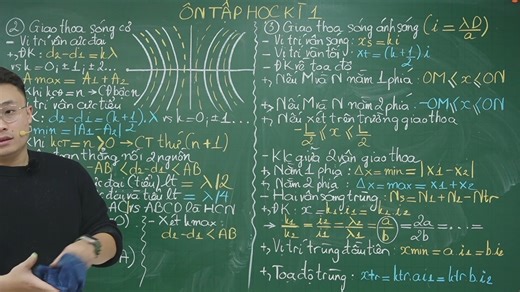 ÔN TẬP HỌC KÌ 1
② Giao thoa sóng cơ
- Vị trí vân cực đại
+, ĐK: d₂-d₁ = kλ
vs k = 0; ±1...
Amax = A₁ + A₂
vị trí vân cực tiểu
d₂-d₁ = (k+½).λ vs k = 0; ±1...
Amin = |A₁-A₂|
Khi kCT = n ≥ 0 → CT thứ (n+1)
nối 2 nguồn
-AB < d₂-d₁ < AB
đại (tiểu) lt = λ/2
đại và tiểu lt = λ/4
ABCD là HCN
- Xét kmax:
d₂-d₁ < AB
③ Giao thoa sóng ánh sáng (i = λD/a)
- Vị trí vân sáng: xs = ki
- Vị trí vân tối: xt = (k+½)i
- ĐK về toạ độ
+, Nếu M và N nằm 1 phía: OM ≤ x ≤ ON
+, Nếu M và N nằm 2 phía: -OM ≤ x ≤ ON
+, Nếu xét trên trường giao thoa
-L/2 ≤ x ≤ L/2
- K/c giữa 2 vân giao thoa
+, Nằm 1 phía: Δx = min = |x₁-x₂|
+, Nằm 2 phía: Δx = max = x₁+x₂
- Hai vân sáng trùng: Ns = N₁ + N₂ - Ntr
+, ĐK: x = k₁i₁ = k₂i₂
→ k₁/k₂ = i₂/i₁ = λ₂/λ₁ = a/b = 2a/2b = ....=
+, Vị trí trùng đầu tiên: xmin = a.i₁ = b.i₂
+, Toạ độ trùng: xtr = ktr.a.i₁ = ktr.b.i₂